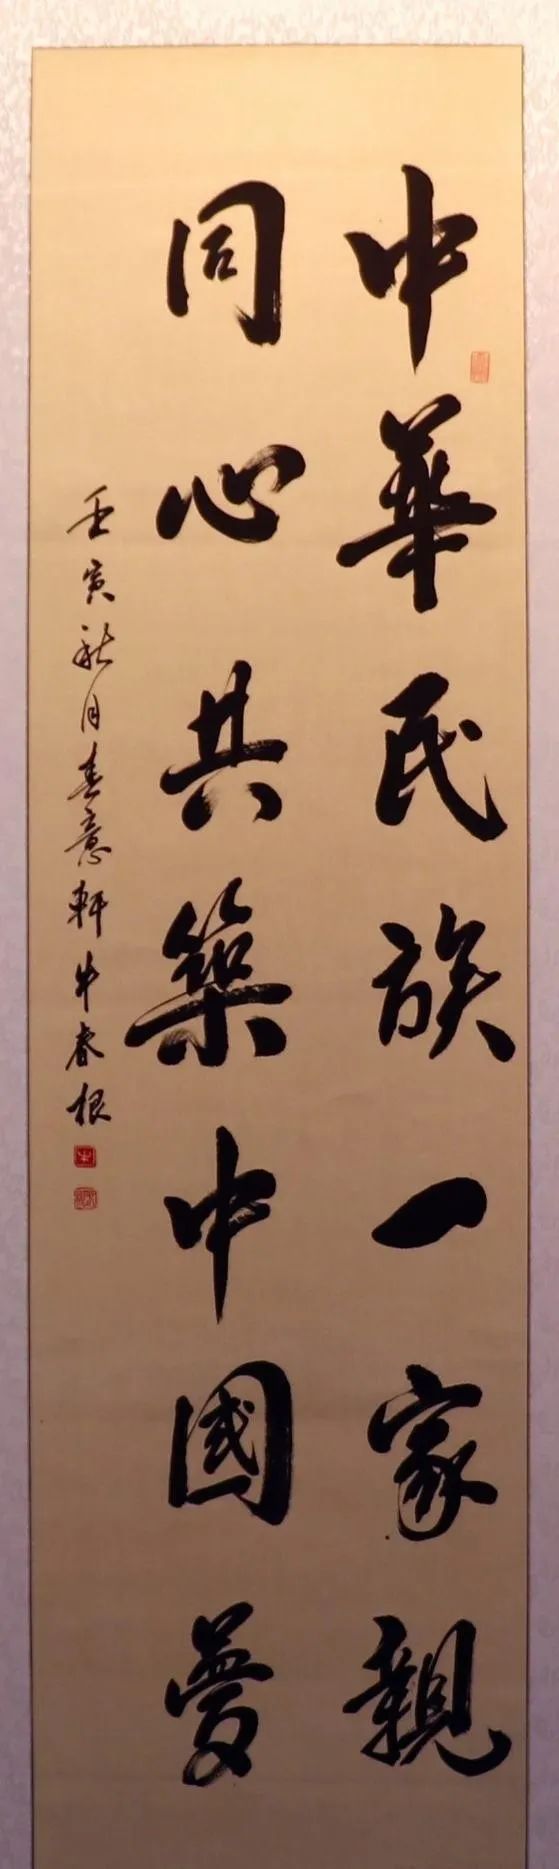 中華民族一家親
同心共築中國夢
壬寅秋月春意軒牛春根